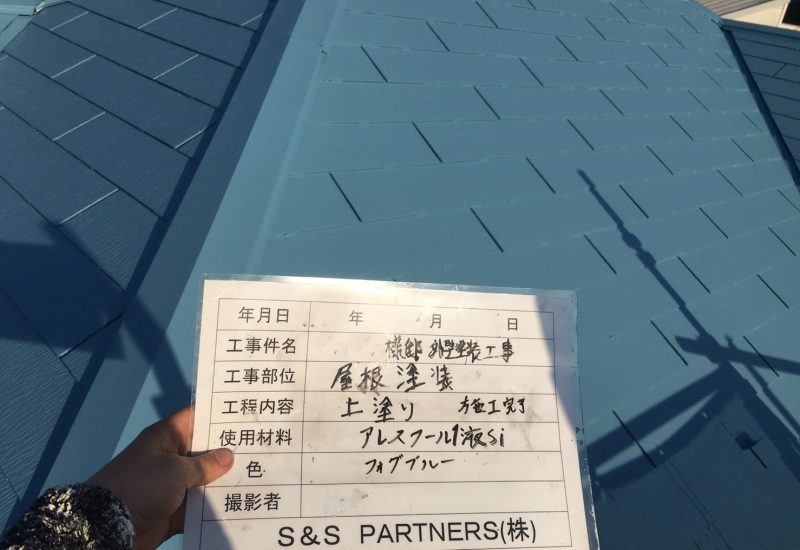 年月日 年 月 日
工事件名 様邸 外壁塗装工事
工事部位 屋根塗装
工程内容 上塗り 施工完了
使用材料 アレスクール1液Si
色 フォグブルー
撮影者
S&S PARTNERS(株)